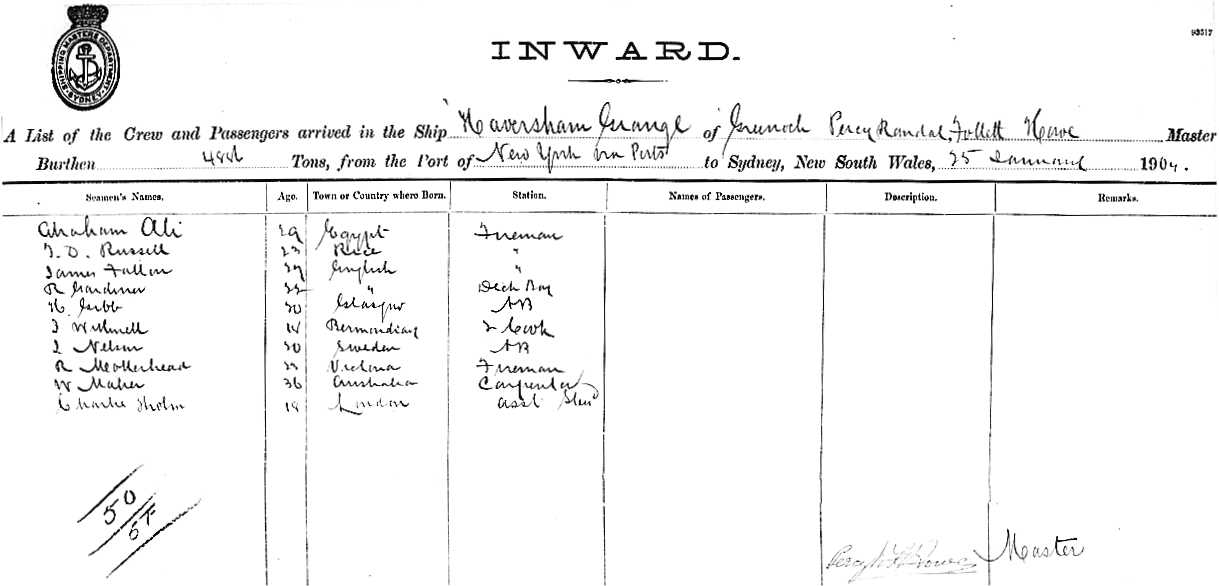 SHIPPING MASTERS DEPARTMENT SYDNEY
93517
INWARD.
A List of the Crew and Passengers arrived in the Ship Haversham Grange of Greenock Percy Randal Follett Howe Master
Burthen Tons, from the Port of New York via Ports to Sydney, New South Wales, 25 January 1904.
Seamen's Names. Age. Town or Country where Born. Station. Names of Passengers. Description. Remarks.
Abraham Ali 29 Egypt Fireman
Russell 23 "
James Fallon 27 English "
R Gardiner 22 " Deck Boy
H. Gibb 20 Glasgow AB
18 2 Cook
Nelson 20 Sweden AB
R Motterhead 22 Victoria Fireman
W Maher 36 Australia Carpenter
Charlie Holm 18 London asst Stwd
50
Master